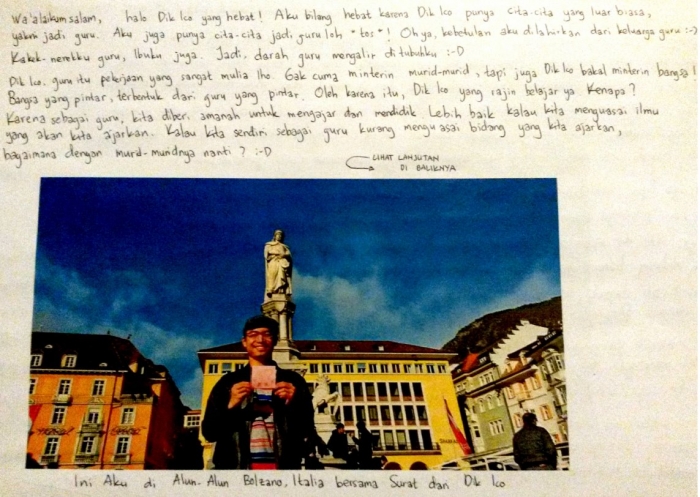 Wa'alaikumsalam, halo Dik Ico yang hebat! Aku bilang hebat karena Dik Ico punya cita-cita yang luar biasa,
yakni jadi guru. Aku juga punya cita-cita jadi guru loh "tos"! Oh ya, kebetulan aku dilahirkan dari keluarga guru :-)
Kakek-nenekku guru, Ibuku juga. Jadi, darah guru mengalir ditubuhku :-D
Dik Ico, guru itu pekerjaan yang sangat mulia lho. Gak cuma minterin murid-murid, tapi juga Dik Ico bakal minterin bangsa!
Bangsa yang pintar, terbentuk dari guru yang pintar. Oleh karena itu, Dik Ico yang rajin belajar ya. Kenapa?
Karena sebagai guru, kita diberi amanah untuk mengajar dan mendidik. Lebih baik kalau kita menguasai ilmu
yang akan kita ajarkan. Kalau kita sendiri sebagai guru kurang menguasai bidang yang kita ajarkan,
bagaimana dengan murid-muridnya nanti? :-D
LIHAT LANJUTAN
DI BALIKNYA
Ini Aku di Alun-Alun Bolzano, Italia bersama Surat dari Dik Ico